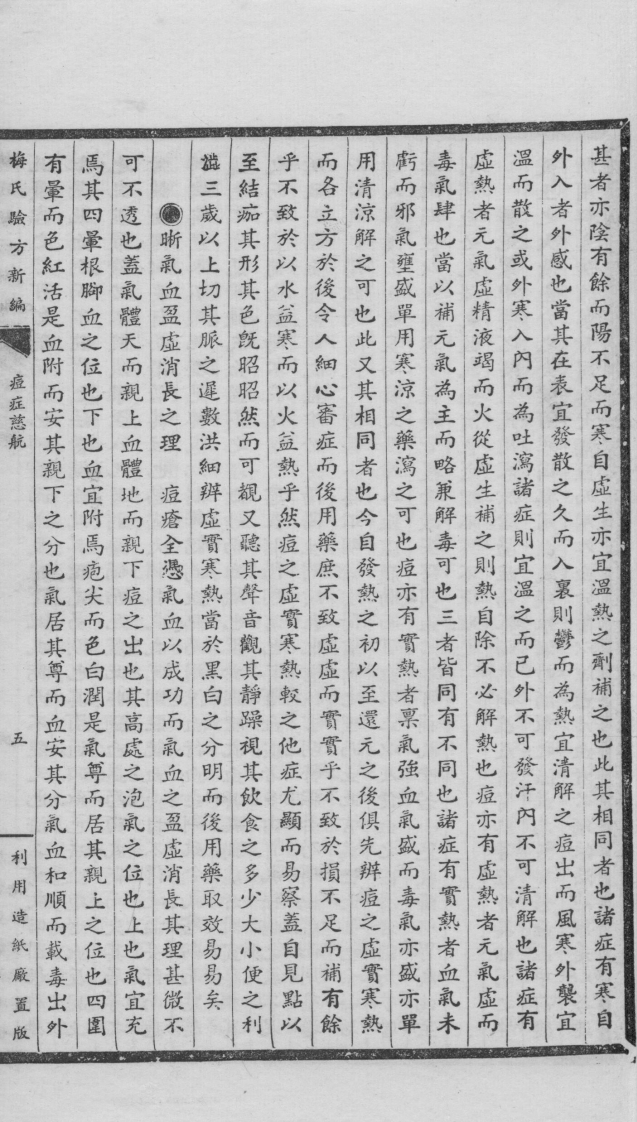 甚者亦陰有餘而陽不足而寒自虛生亦宜溫熱之劑補之也此其相同者也諸症有寒自
外入者外感也當其在表宜發散之久而入裏則鬱而為熱宜清解之痘出而風寒外襲宜
溫而散之或外寒入內而為吐瀉諸症則宜溫之而已外不可發汗內不可清解也諸症有
虛熱者元氣虛精液竭而火從虛生補之則熱自除不必解熱也痘亦有虛熱者元氣虛而
毒氣肆也當以補元氣為主而略兼解毒可也三者皆同有不同也諸症有實熱者血氣未
虧而邪氣壅盛單用寒涼之藥瀉之可也痘亦有實熱者稟氣強血氣盛而毒氣亦盛亦單
用清涼解之可也此又其相同者也今自發熱之初以至還元之後俱先辦痘之虛實寒熱
而各立方於後令人細心審症而後用藥庶不致虛虛而實實乎不致於損不足而補有餘
乎不致於以水益寒而以火益熱乎然痘之虛實寒熱較之他症尤顯而易察蓋自見點以
至結痂其形其色旣昭昭然而可覩又聽其聲音觀其靜躁視其飲食之多少大小便之利
澁三歲以上切其脈之遲數洪細辨虛實寒熱當於黑白之分明而後用藥取效易易矣
晰氣血盈虛消長之理 痘瘡全憑氣血以成功而氣血之盈虛消長其理甚微不
可不透也蓋氣體天而親上血體地而親下痘之出也其高處之泡氣之位也上也氣宜充
焉其四暈根腳血之位也下也血宜附焉疱尖而色白潤是氣尊而居其親上之位也四圍
有暈而色紅活是血附而安其親下之分也氣居其尊而血安其分氣血和順而載毒出外
梅氏驗方新編 痘症慈航 五 利用造紙廠置版